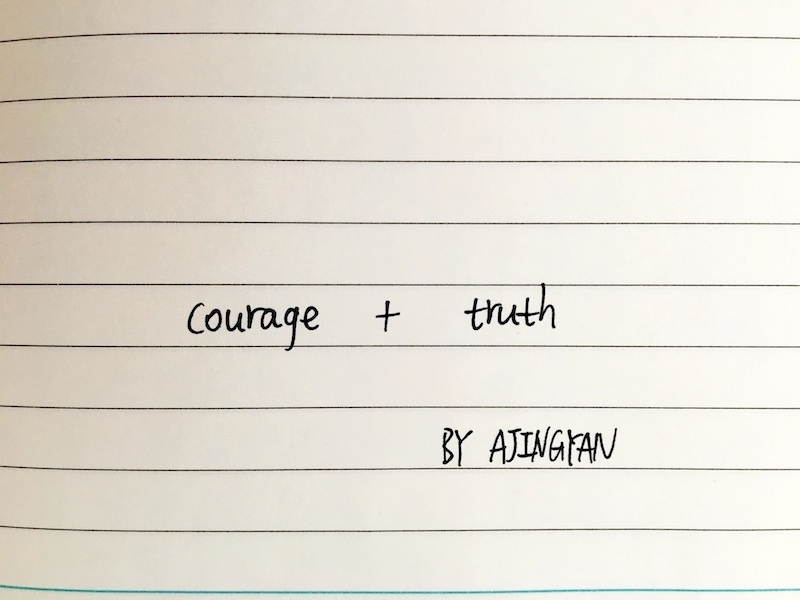 courage + truth
BY AJINGYAN